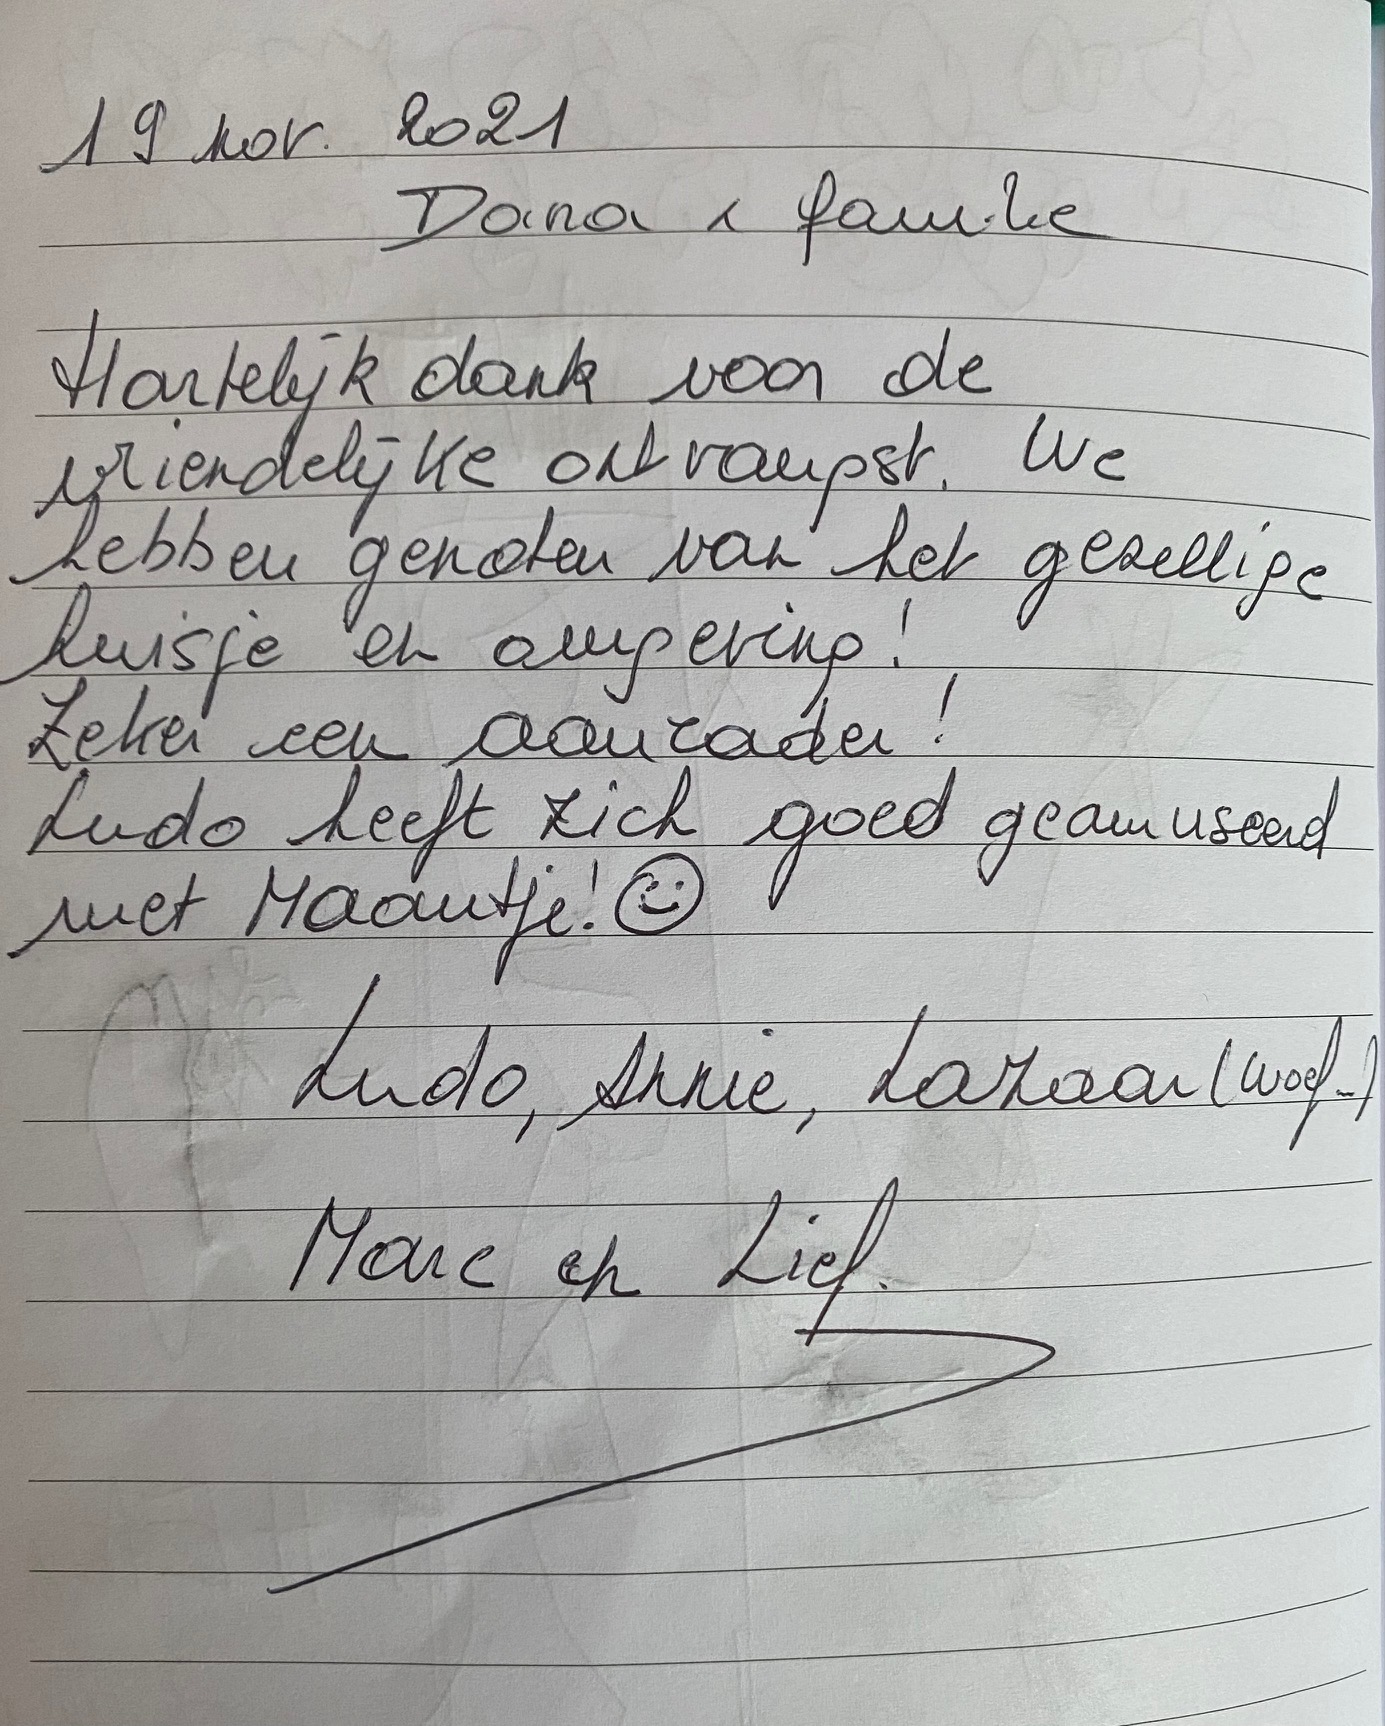 19 nov. 2021
Dana & familie
Hartelijk dank voor de
vriendelijke ontvangst. We
hebben genoten van het gezellige
huisje en omgeving!
Zeker een aanrader!
Ludo heeft zich goed geamuseerd
met Maantje! ☺
Ludo, Annie, Lazaar (woef..)
Marc en Lief.